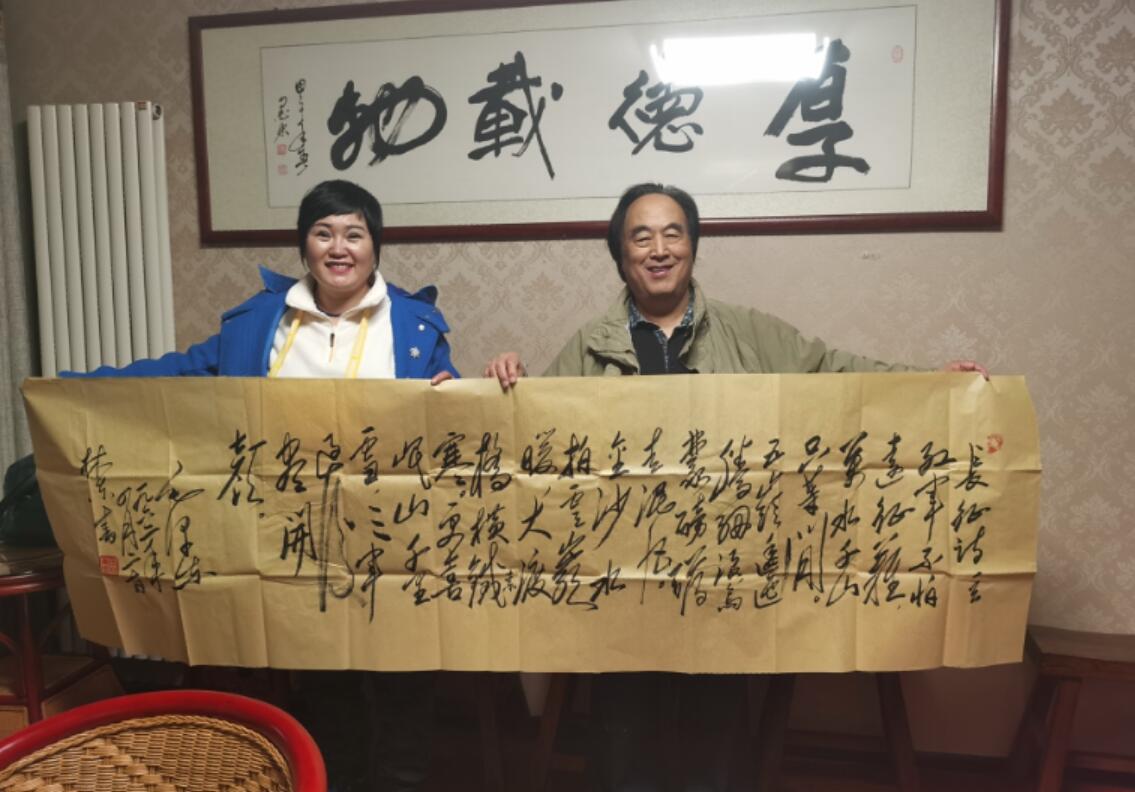 厚德載物
長征詩
红軍不怕
遠征難
萬水千山
只等閒
五岭逶迤
腾細浪烏
蒙磅礴
走泥丸
金沙水
拍雲崖
暖大渡
橋横鐵索
寒更喜
岷山千里
雪三軍
過後
盡開
顏